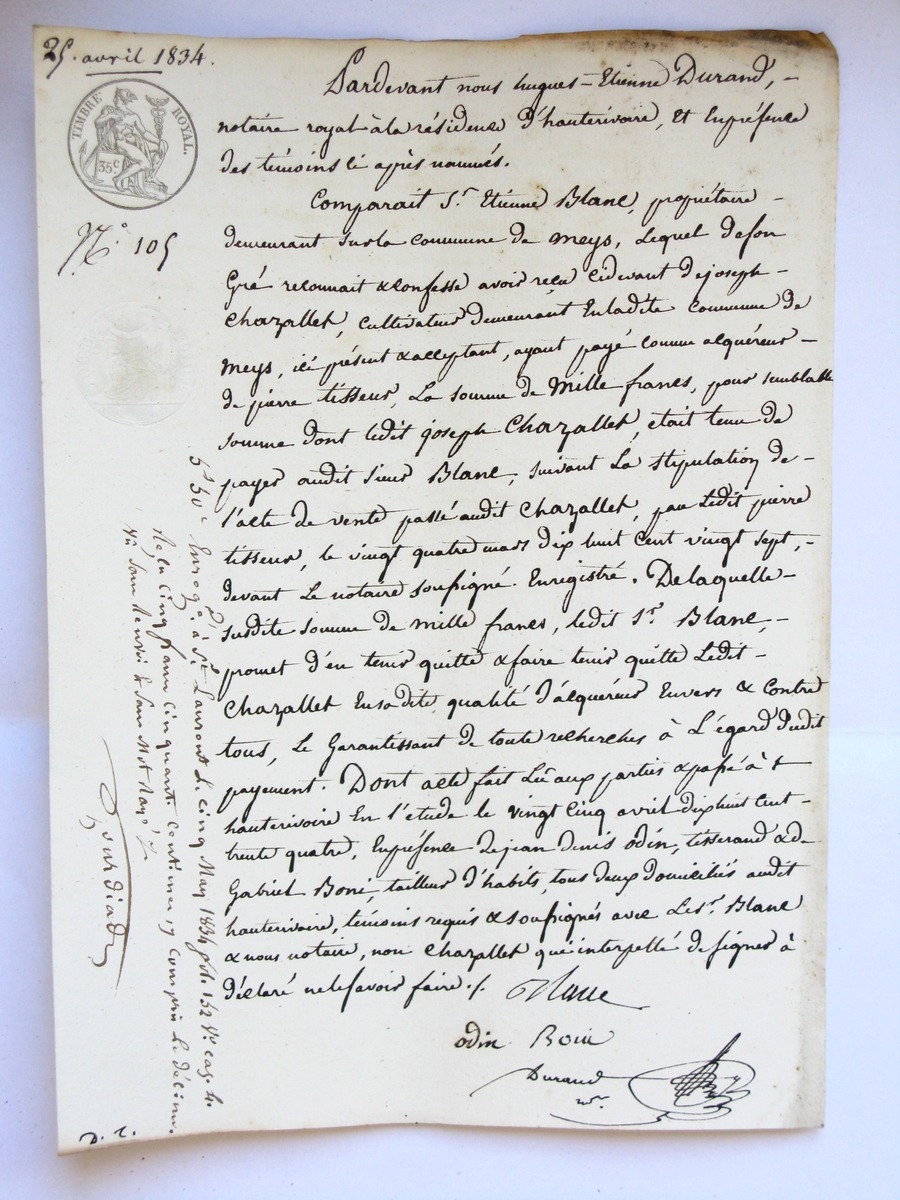 25. avril 1834.
TIMBRE ROYAL.
35 c
N.° 105
Pardevant nous hugues-Etienne Durand,-
notaire royal à la résidence d'hauterivoire, Et En présence
des témoins ci après nommés.
Comparait S.r Etienne Blanc, propriétaire-
demeurant sur la commune de Meys, Lequel de son
Gré reconnait & confesse avoir reçu cidevant de joseph-
Chazallet, cultivateur demeurant En ladite commune de
Meys, ici présent & acceptant, ayant payé comme acquéreur-
de pierre tisseur, La somme de Mille francs, pour semblable
somme dont ledit joseph Chazallet, était tenu de
payer audit sieur Blanc, suivant La stipulation de-
l'acte de vente passé audit Chazallet, par Ledit pierre
tisseur, le vingt quatre mars dix huit cent vingt sept,-
devant Le notaire soussigné. Enregistré. De laquelle-
susdite somme de mille francs, ledit S.r Blanc,-
promet d'en tenir quitte & faire tenir quitte Ledit-
Chazallet En sadite qualité d'acquéreur Envers & Contre
tous, Le Garantissant de toute recherches à L'égard dudit
payement. Dont acte fait Lu aux parties & passé à
hauterivoire En l'étude le vingt cinq avril dix huit cent-
trente quatre, En présence de jean denis odin, tisserand & de
Gabriel Boni, tailleur d'habits, tous deux domiciliés audit
hauterivoire, témoins requis & soussignés avec Le S.r Blanc
& nous notaire, non Chazallet qui interpellé de signer à
déclaré ne le savoir faire ./.
Blanc
odin Boni
Durand
n.re
5 f 50 c Enreg.é à S.t Laurent le cinq May 1834 f.o 152 V.o cas. 4.
Reçu cinq francs cinquante centimes y compris le décime.
sans Renvoi & sans Mot Rayé
D. t.